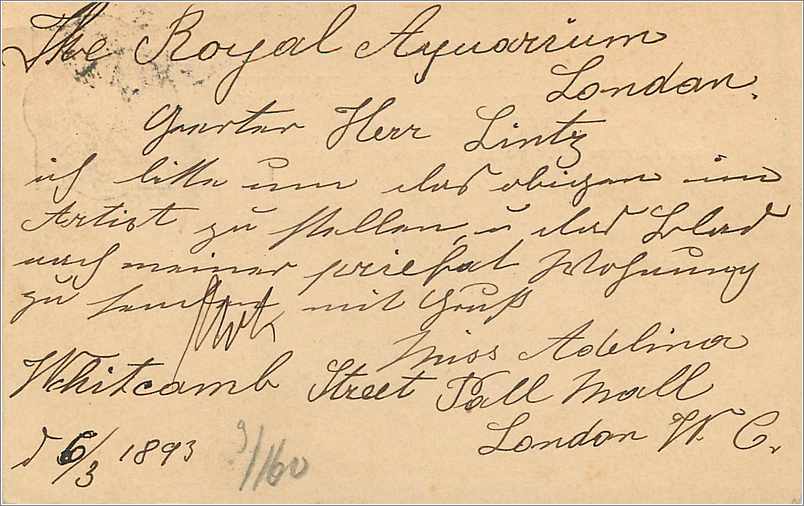 The Royal Aquarium
London.
Geerter Herr Lintz
ich bitte um das obigen im
Artist zu stellen, u das Blad
nach meiner priefat Wohnung
zu senden mit Gruß
Miss Adelina
Whitcamb Street Pall Mall
London W. C.
d 6/3 1893
9/160